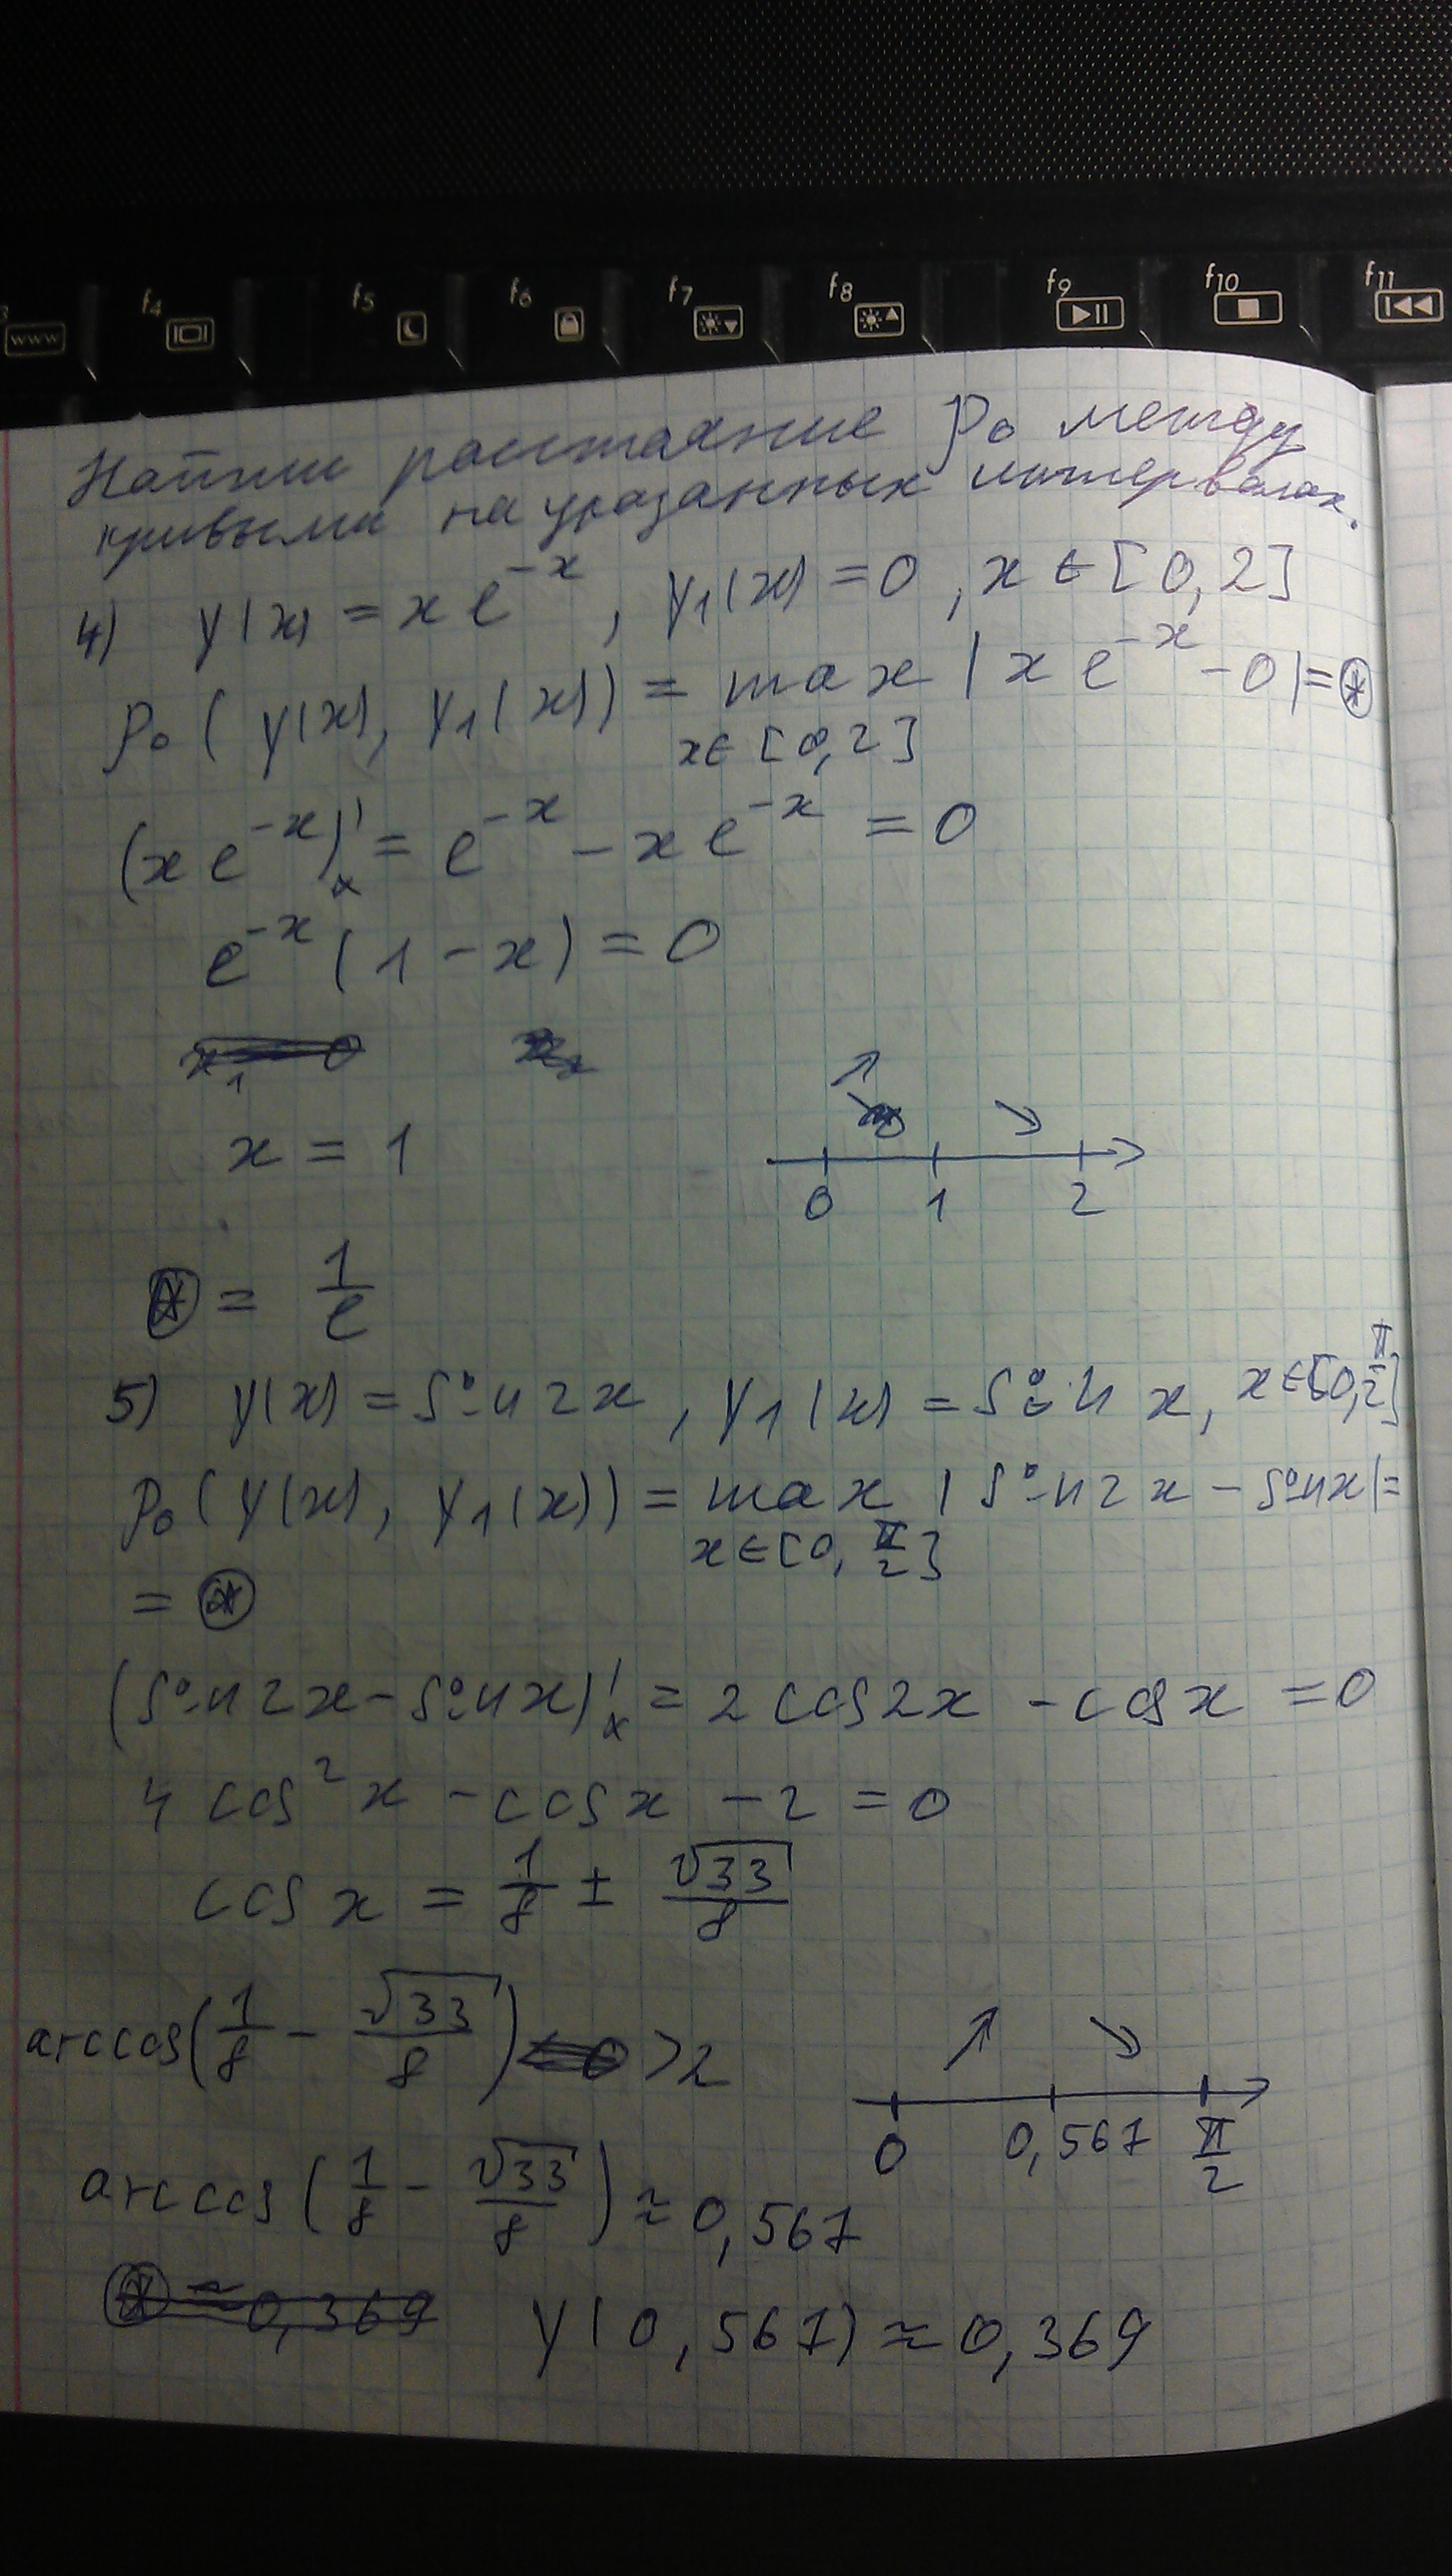 www f4 f5 f6 f7 f8 f9 f10 f11
Найти расстояние ρ₀ между
кривыми на указанных интервалах.
4) y(x) = x e^{-x}, y₁(x) = 0, x ∈ [0, 2]
ρ₀(y(x), y₁(x)) = max |x e^{-x} - 0| = ⊛
x ∈ [0, 2]
(x e^{-x})'ₓ = e^{-x} - x e^{-x} = 0
e^{-x}(1 - x) = 0
x = 1
0 1 2
⊛ = 1/e
5) y(x) = sin 2x, y₁(x) = sin x, x ∈ [0, π/2]
ρ₀(y(x), y₁(x)) = max |sin 2x - sin x| =
x ∈ [0, π/2]
= ⊛
(sin 2x - sin x)'ₓ = 2 cos 2x - cos x = 0
4 cos² x - cos x - 2 = 0
cos x = 1/8 ± √33/8
arccos(1/8 - √33/8) > 2
0 0,567 π/2
arccos(1/8 - √33/8) ≈ 0,567
⊛ ≈ 0,369 y(0,567) ≈ 0,369